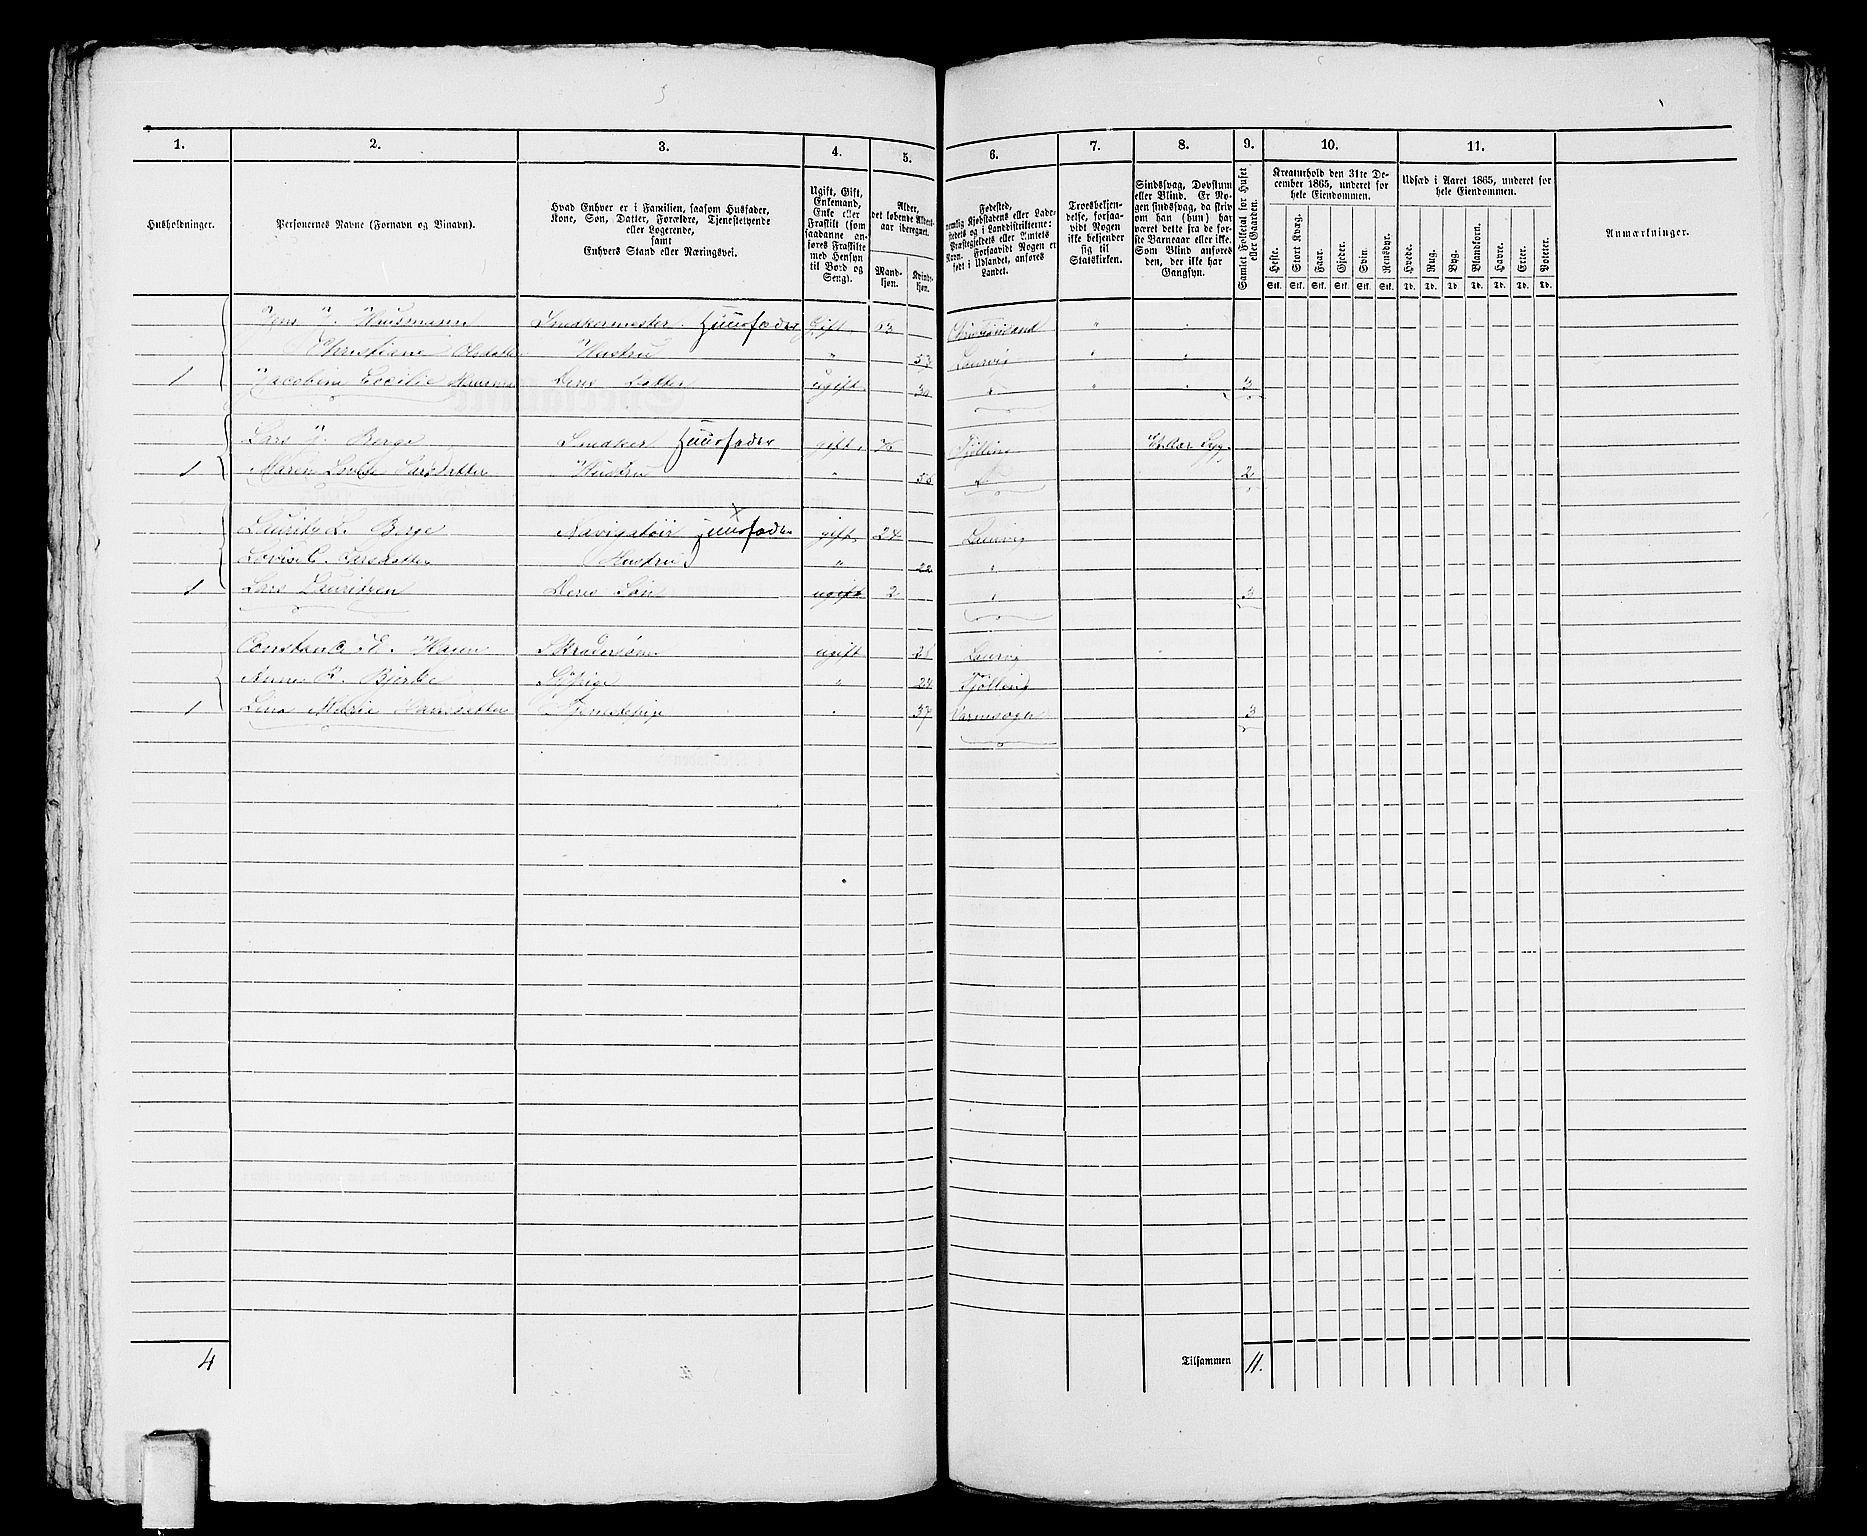 1. 2. 3. 4. 5. 6. 7. 8. 9. 10. 11.
Husholdninger.
Personernes Navne (Fornavn og Binavn).
Hvad Enhver er i Familien, saasom Husfader,
Kone, Søn, Datter, Forældre, Tjenestetyende
eller Logerende,
samt
Enhvers Stand eller Næringsvei.
Ugift, Gift,
Enkemand,
Enke eller
Fraskilt (som
saadanne an-
føres Fraskilte
med Hensyn
til Bord og
Seng).
Alder,
det løbende Alders-
aar iberegnet.
Mand-
kjøn.
Kvinde-
kjøn.
Fødested,
nemlig Kjøbstadens eller Lade-
stedets og i Landdistrikterne:
Præstegjeldets eller Amtets
Navn. Forsaavidt Nogen er
født i Udlandet, anføres
Landet.
Troesbekjen-
delse, forsaa-
vidt Nogen
ikke bekjender
sig til
Statskirken.
Sindssvag, Døvstum
eller Blind. Er No-
gen sindssvag, da skriv
om han (hun) har
været dette fra de før-
ste Barneaar eller ikke.
Som Blind anføres
den, der ikke har
Gangsyn.
Samlet Folketal for Huset
eller Gaarden.
Kreaturhold den 31te De-
cember 1865, underet for
hele Eiendommen.
Heste. Stort Kvæg. Faar. Gjeder. Svin. Rensdyr.
Stk. Stk. Stk. Stk. Stk. Stk.
Udsæd i Aaret 1865, underet for
hele Eiendommen.
Hvede. Rug. Byg. Blandkorn. Havre. Erter. Poteter.
Td. Td. Td. Td. Td. Td. Td.
Anmærkninger.
Jens J. Husmann Snedkermester Huusfader Gift 53 Christiansand " "
Christiane Olsdatter Hustru " 53 Laurvig " "
1 Jacobine Cecilie Deres Datter ugift 30 " " " 3
Lars J. Berge Snedker Huusfader gift Tjølling
1 Maren Larsdatter Hustru " 2
Lauritz L. Berge Navigatør Huusfader gift 24 Laurvig
Lovise C. Larsdatter Hustru " 22 "
1 Lars Lauritzen Deres Søn ugift 2 " 3
Constance E. ugift Laurvig
Anne R. Bjerke " Tjølling
1 Lina Marie Hansdatter Tjenestepige " 37 3
4
Tilsammen 11.